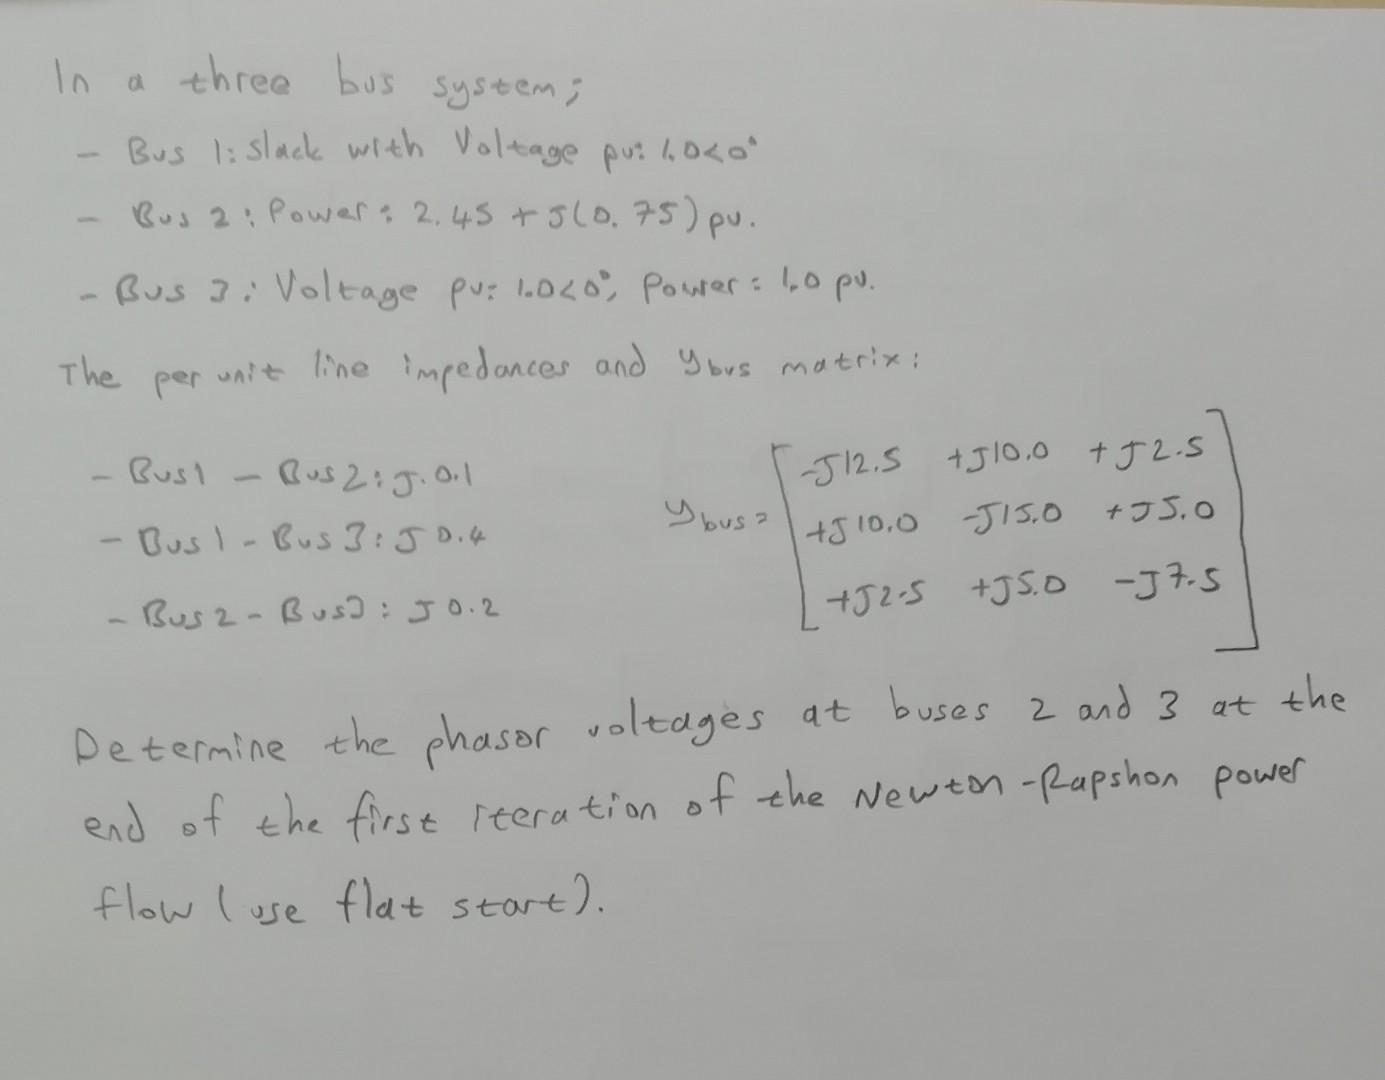 In a three bus system;
- Bus 1: Slack with Voltage pu: 1.0<0°
- Bus 2: Power: 2.45 + J(0.75) pu.
- Bus 3: Voltage pu: 1.0<0°, Power: 1.0 pu.
The per unit line impedances and Ybus matrix:
- Bus1 - Bus2: J.0.1
- Bus1 - Bus3: J0.4
- Bus2 - Bus3: J0.2
Ybus =
-J12.5 +J10.0 +J2.5
+J10.0 -J15.0 +J5.0
+J2.5 +J5.0 -J7.5
Determine the phasor voltages at buses 2 and 3 at the
end of the first iteration of the Newton-Rapshon power
flow (use flat start).